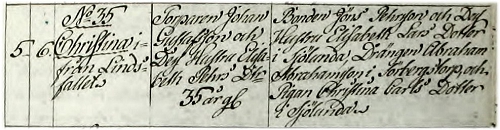 No 35
5 6. Christina i-
från Linds-
fallet
Torparen Johan
Gustafsson och
Des Hustru Elisa-
beth Pehrs Dr
35 årgl
Bonden Jöns Pehrson och Des
Hustru Elisabeth Lars Dotter
i Sjölunda, Drängen Abraham
Abrahamson i Torbergstorp, och
Pigan Christina Carls Dotter
i Sjölunda.